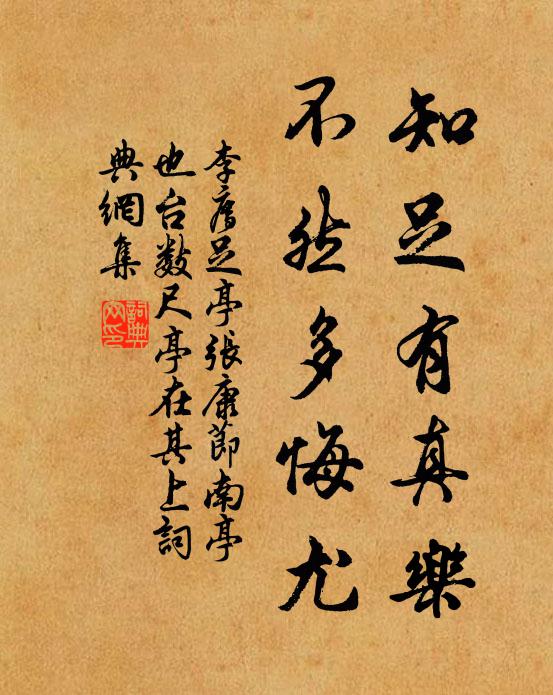 知足有真樂
不然多悔尤
李膺足亭張康節南亭
也台数尺亭在其上詞
典網集
詞典